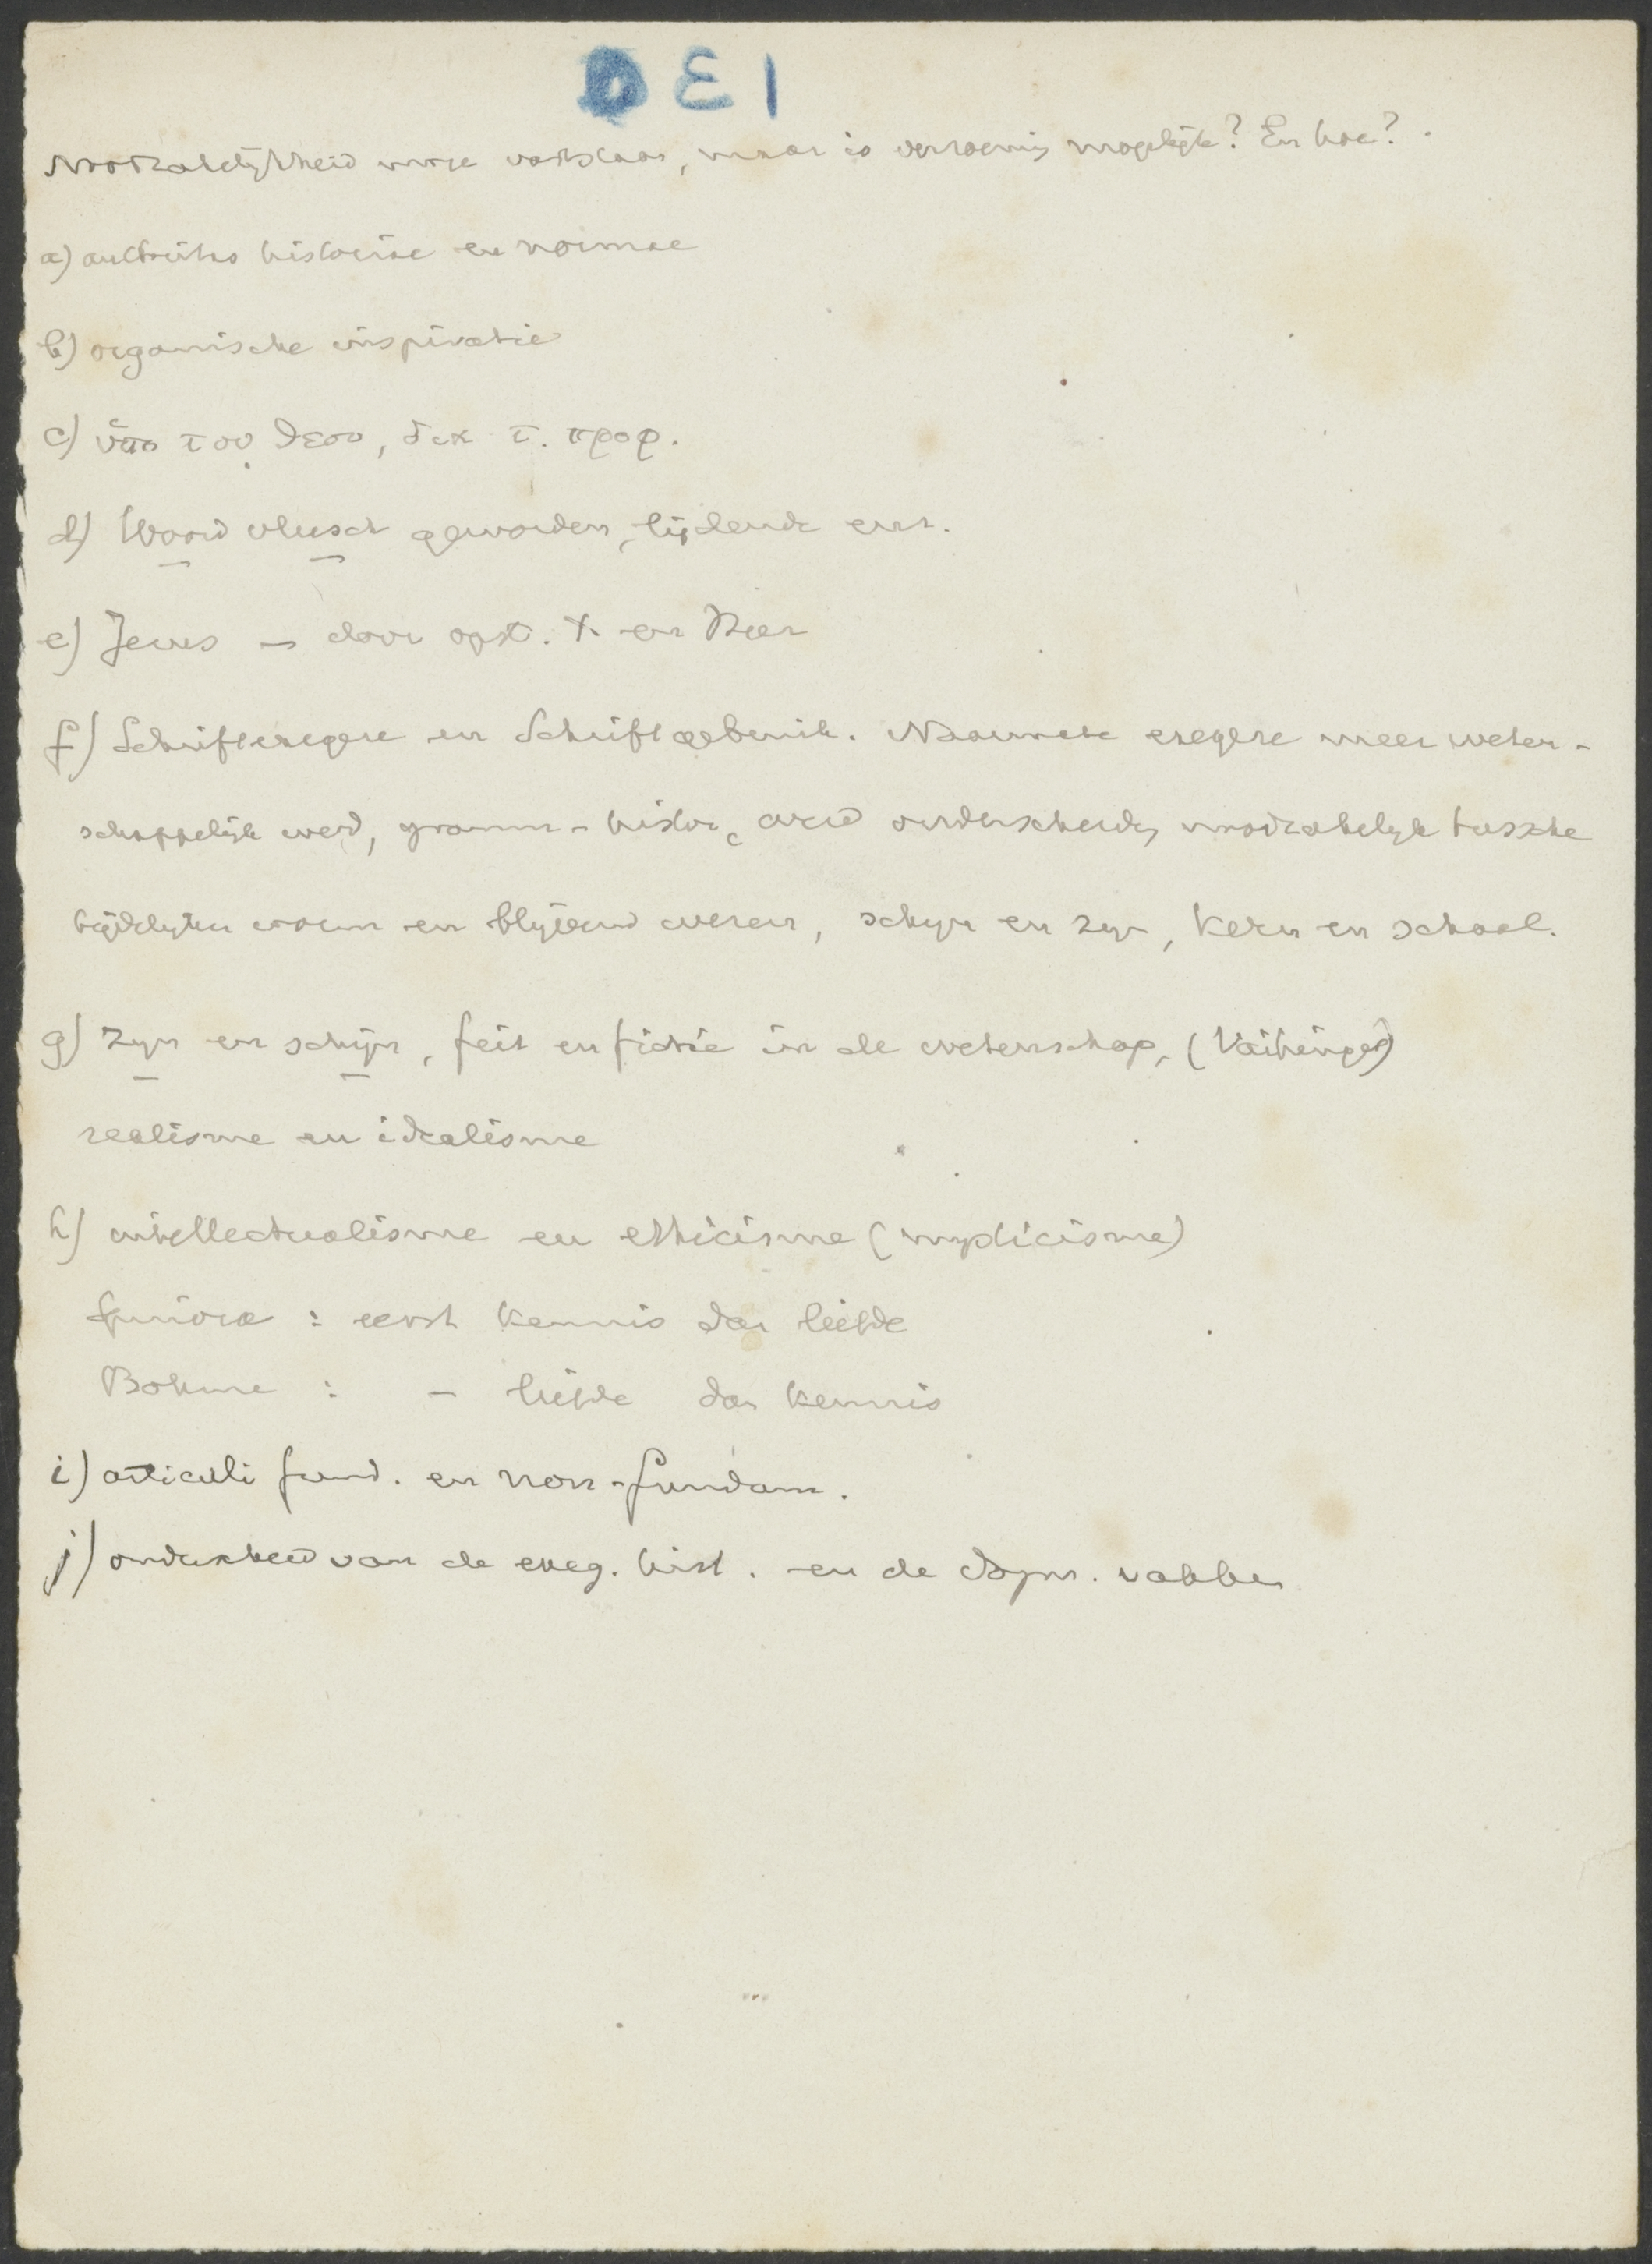 D E 1
Noodzakelijkheid moge vaststaan, maar is verzoening mogelijk? En hoe?
a) auctoritas historiae en normae
b) organische inspiratie
c) ὑπο του θεου, δια τ. προφ.
d) Woord vleesch geworden, lijdende
e) Jezus – door opst. X. en Heer
f) Schriftexegese en Schriftgebruik. Naarmate exegese meer weten-
schappelijk werd, gramm-histor, werd onderscheidg noodzakelijk tussche
tijdelijken vorm en blijvend wezen, schijn en zijn, kern en schaal.
g) Zijn en schijn, feit en fictie in de wetenschap, (Vaihinger)
realisme en idealisme
h) intellectualisme en ethicisme (mysticisme)
Spinoza : eerst kennis dan liefde
Böhme : – liefde dan kennis
i) articuli fund. en non-fundam.
j) van de exeg. hist. en de dogm. vakken